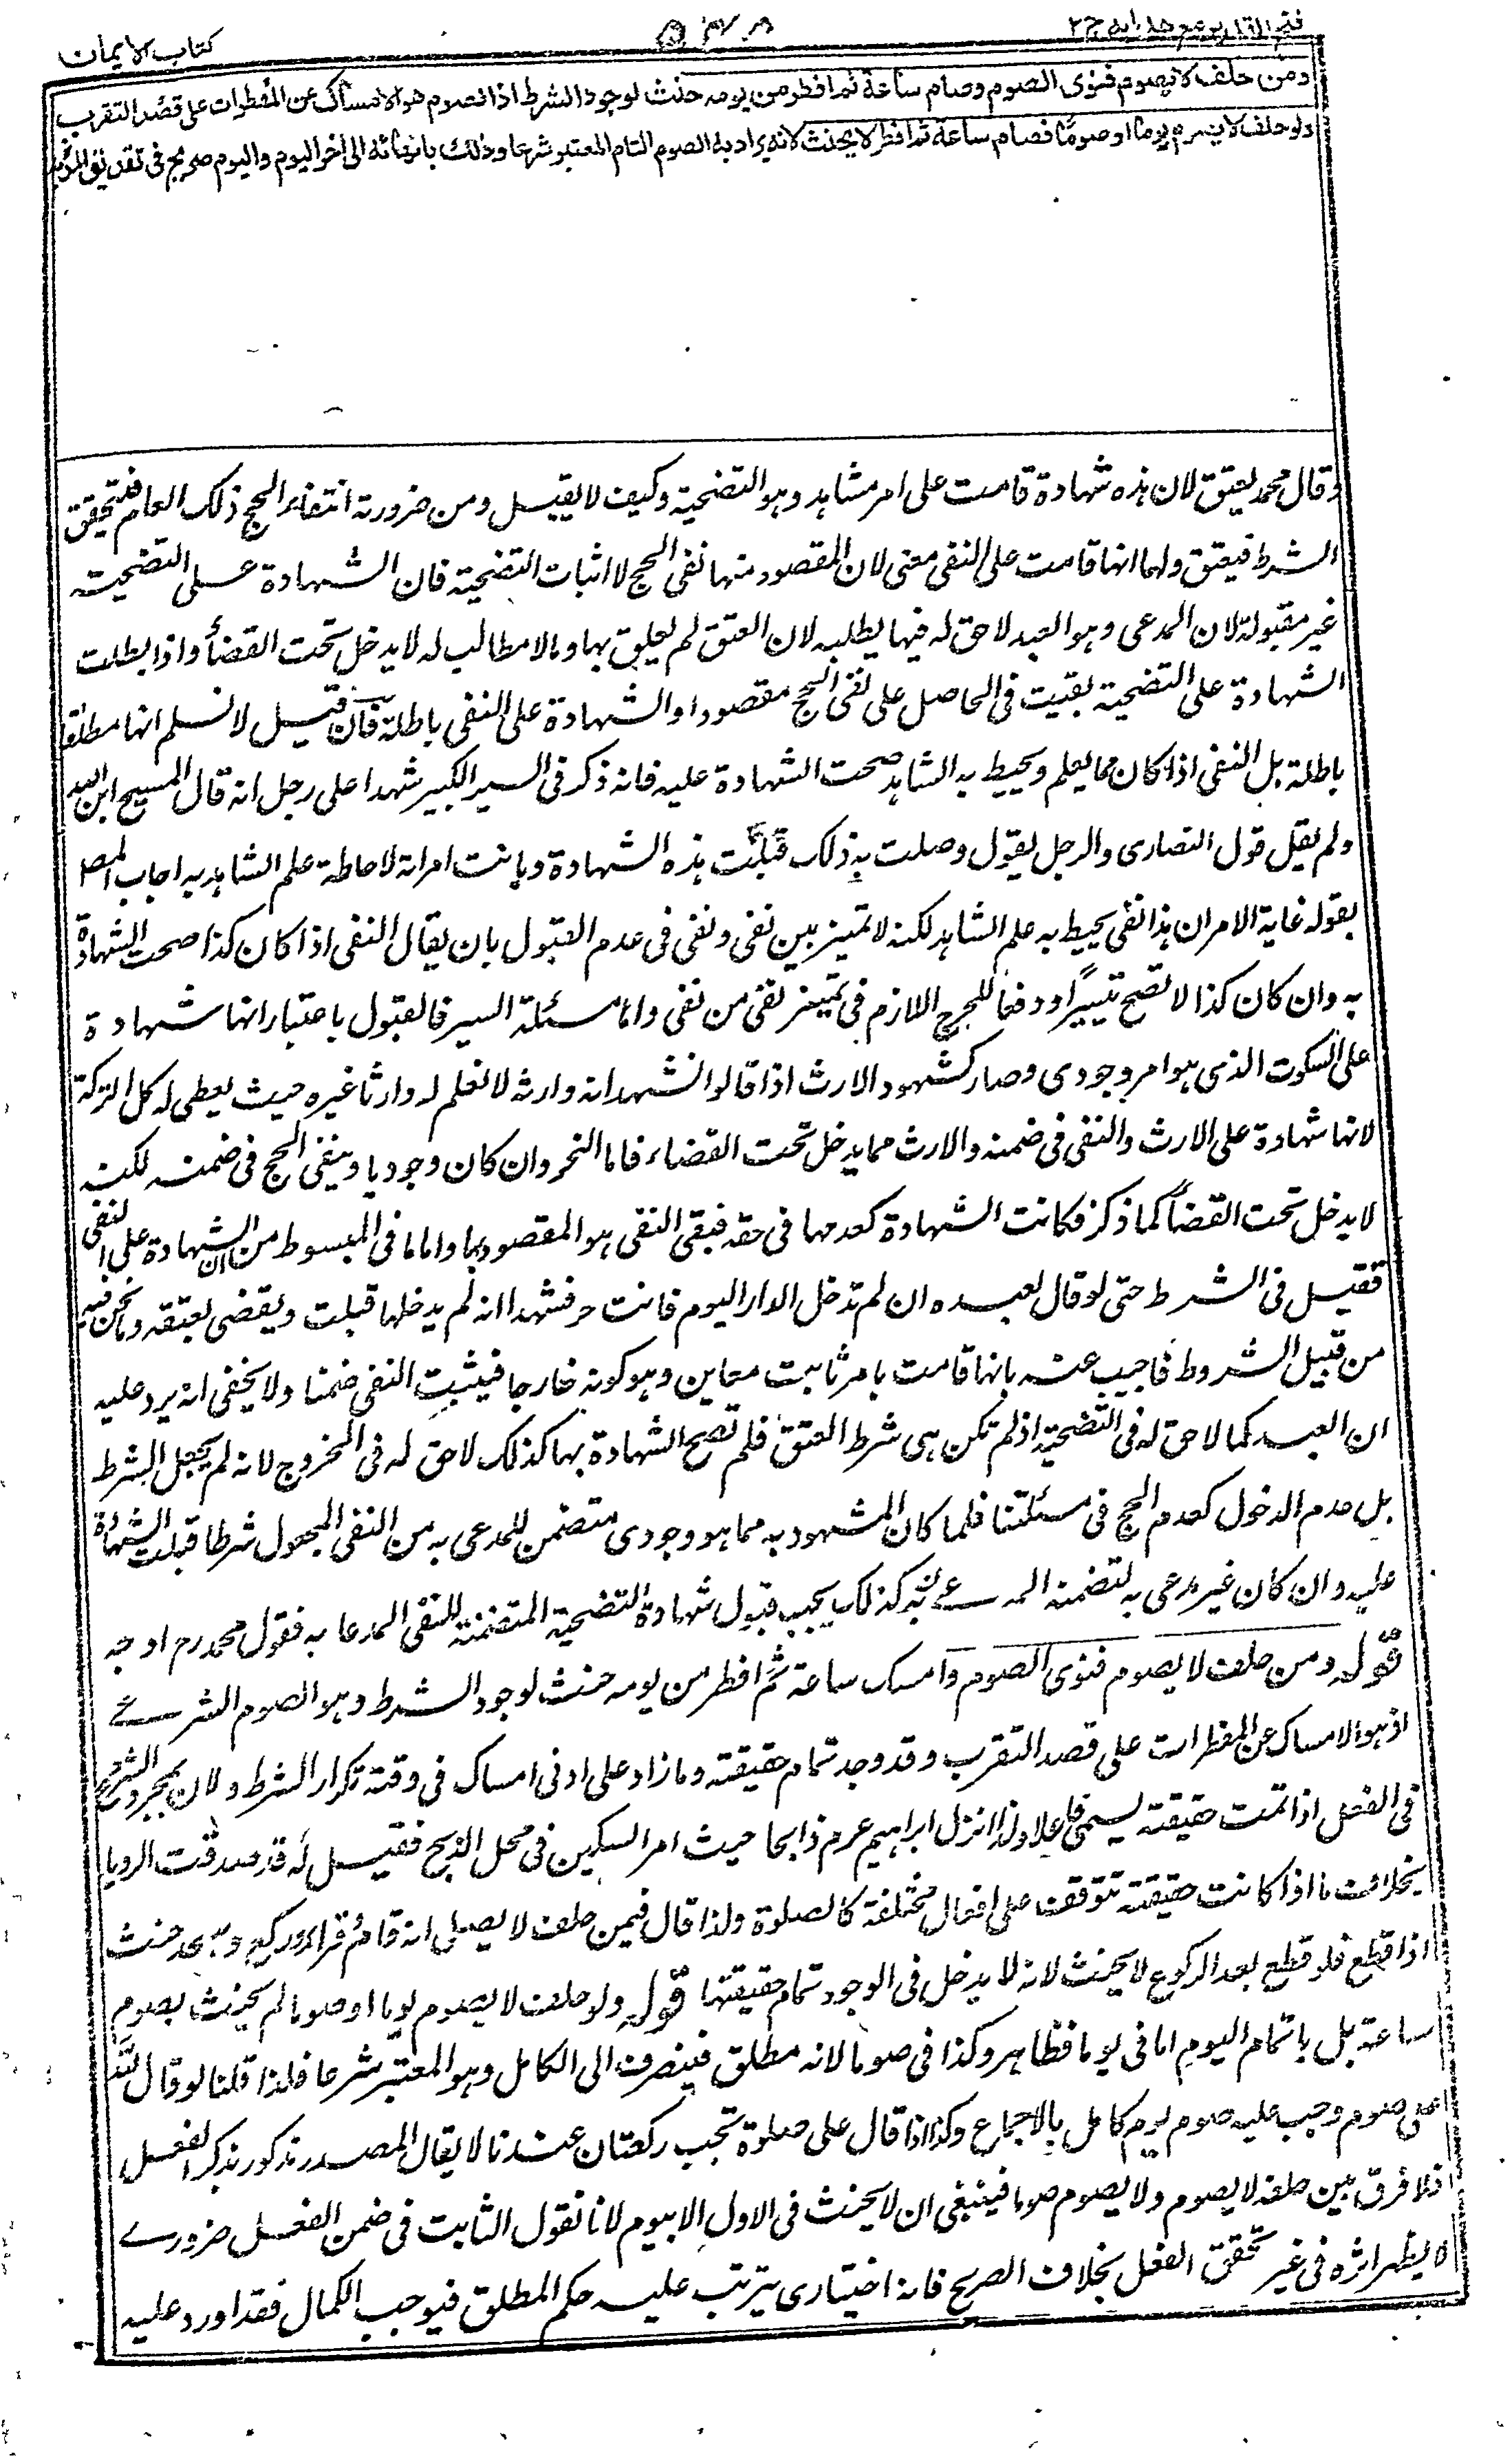 فتح القدير مع هدايه ج ٢
كتاب الايمان
ومن حلف لا يصوم فنوى الصوم وصام ساعة ثم افطر من يومه حنث لوجود الشرط اذ الصوم هو الامساك عن المفطرات على قصد التقرب
ولو حلف لا يصوم يوما او صوما فصام ساعة ثم افطر لا يحنث لانه يراد به الصوم التام المعتبر شرعا وذلك بانهائه الى اخر اليوم واليوم صريح فى تقدير المدة به
وقال محمد يعتق لان هذه شهادة قامت على امر مشاهد وهو التضحية وكيف لا يقبل ومن ضرورته انتفاء الحج ذلك العام فتحقق
الشرط فيعتق ولهما انها قامت على النفى معنى لان المقصود منها نفى الحج لا اثبات التضحية فان الشهادة على التضحية
غير مقبولة لان المدعى وهو العبد لاحق له فيها يطلبه لان العتق لم يعلق بها وما لا مطالب له لا يدخل تحت القضاء واذا بطلت
الشهادة على التضحية بقيت فى الحاصل على نفى الحج مقصودا والشهادة على النفى باطلة فان قيل لا نسلم انها مطلقا
باطلة بل النفى اذا كان مما يعلم ويحيط به الشاهد صحت الشهادة عليه فانه ذكر فى السير الكبير شهدا على رجل انه قال المسيح ابن الله
ولم يقل قول النصارى والرجل يقول وصلت به ذلك قبلت هذه الشهادة وبانت امرأته لاحاطة علم الشاهد به اجاب المص
بقوله غاية الامر ان هذا نفى يحيط به علم الشاهد لكنه لا تميز بين نفى ونفى فى عدم القبول بان يقال النفى اذا كان كذا صحت الشهادة
به وان كان كذا لا تصح تيسيرا ودفعا للحرج اللازم فى تمييز نفى من نفى واما مسئلة السير فالقبول باعتبار انها شهادة
على السكوت الذى هو امر وجودى وصار كشهود الارث اذا قالوا نشهد انه وارثه لا نعلم له وارثا غيره حيث يعطى له كل التركة
لانها شهادة على الارث والنفى فى ضمنه والارث مما يدخل تحت القضاء فاما النحر وان كان وجوديا وينفى الحج فى ضمنه لكنه
لا يدخل تحت القضاء كما ذكر فكانت الشهادة كعدمها فى حقه فبقى النفى هو المقصود بها واما ما فى المبسوط من ان الشهادة على النفى
فقيل فى الشرط حتى لو قال لعبده ان لم تدخل الدار اليوم فانت حر فشهدا انه لم يدخلها قبلت ويقضى بعتقه وما نحن فيه
من قبيل الشروط فاجيب عنه بانها قامت بامر ثابت معاين وهو كونه خارجا فيثبت النفى ضمنا ولا يخفى انه يرد عليه
ان العبد كما لا حق له فى التضحية اذ لم تكن هى شرط العتق فلم تصح الشهادة بها كذلك لا حق له فى الخروج لانه لم يجعل الشرط
بل عدم الدخول كعدم الحج فى مسئلتنا فلما كان المشهود به مما هو وجودى متضمن للمدعى به من النفى المجعول شرطا قبلت الشهادة
عليه وان كان غير مدعى به لتضمنه المدعى به كذلك يجب قبول شهادة التضحية المتضمنة للنفى المدعا به فقول محمد رح اوجه
قوله ومن حلف لا يصوم فنوى الصوم وامسك ساعة ثم افطر من يومه حنث لوجود الشرط وهو الصوم الشرعى
اذ هو الامساك عن المفطرات على قصد التقرب وقد وجد تمام حقيقته وما زاد على ادنى امساك فى وقته تكرار الشرط ولان بمجرد الشروع
فى الفعل اذا تمت حقيقته يسمى فاعلا ولذا نزل ابراهيم عم ذابحا حيث امر السكين فى محل الذبح فقيل له قد صدقت الرويا
بخلاف ما اذا كانت حقيقته تتوقف على افعال مختلفة كالصلوة ولذا قال فيمن حلف لا يصلى انه قام وقرأ وركع وسجد حنث
اذا قطع فلو قطع بعد الركوع لا يحنث لانه لا يدخل فى الوجود تمام حقيقتها قوله ولو حلف لا يصوم يوما او صوما لم يحنث بصوم
ساعة بل باتمام اليوم اما فى يوما فظاهر وكذا فى صوما لانه مطلق فينصرف الى الكامل وهو المعتبر شرعا فلذا قلنا لو قال لله
على صوم وجب عليه صوم يوم كامل بالاجماع وكذا اذا قال على صلوة تجب ركعتان عندنا لا يقال المصدر مذكور بذكر الفعل
اذ لا فرق بين حلفه لا يصوم ولا يصوم صوما فينبغى ان لا يحنث فى الاول الا بيوم لانا نقول الثابت فى ضمن الفعل ضرورى
لا يظهر اثره فى غير تحقق الفعل بخلاف الصريح فانه اختيارى يترتب عليه حكم المطلق فيوجب الكمال فقد اورد عليه